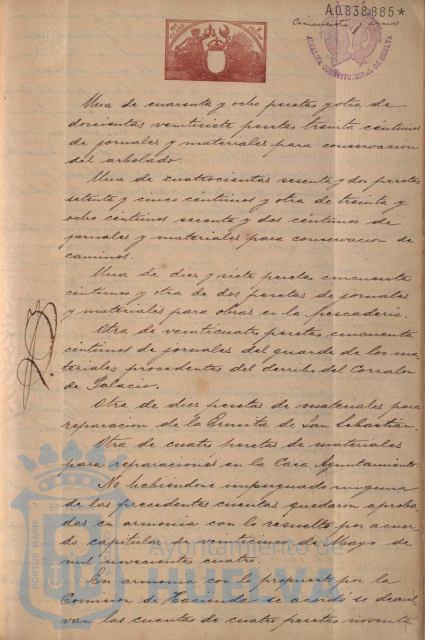 A.0.838,885*
Cincuenta y uno
ALCALDIA CONSTITUCIONAL DE HUELVA
Una de cuarenta y ocho pesetas y otra de
doscientas veintisiete pesetas treinta céntimos
de jornales y materiales para conservacion
del arbolado.
Una de cuatrocientas sesenta y dos pesetas
setenta y cinco céntimos y otra de treinta y
ocho céntimos sesenta y dos céntimos de
jornales y materiales para conservacion de
caminos.
Una de diez y siete pesetas cincuenta
céntimos y otra de dos pesetas de jornales
y materiales para obras en la pescaderia.
Otra de veinticuatro pesetas cincuenta
céntimos de jornales del guarda de los ma-
teriales procedentes del derribo del Corralon
de Palacio.
Otra de diez pesetas de materiales para
reparacion de la Ermita de San Sebastián.
Otra de cuatro pesetas de materiales
para reparaciones en la Casa Ayuntamiento.
No habiéndose impugnado ninguna
de las precedentes cuentas quedaron aproba-
das en armonia con lo resuelto por acuer-
do capitular de veinticinco de Mayo de
mil novecientos cuatro.
En armonia con lo propuesto por la
Comision de Hacienda se acordó se devuel-
van las cuentas de cuatro pesetas noventa
PORTUS MARIS
Ayuntamiento de
HUELVA